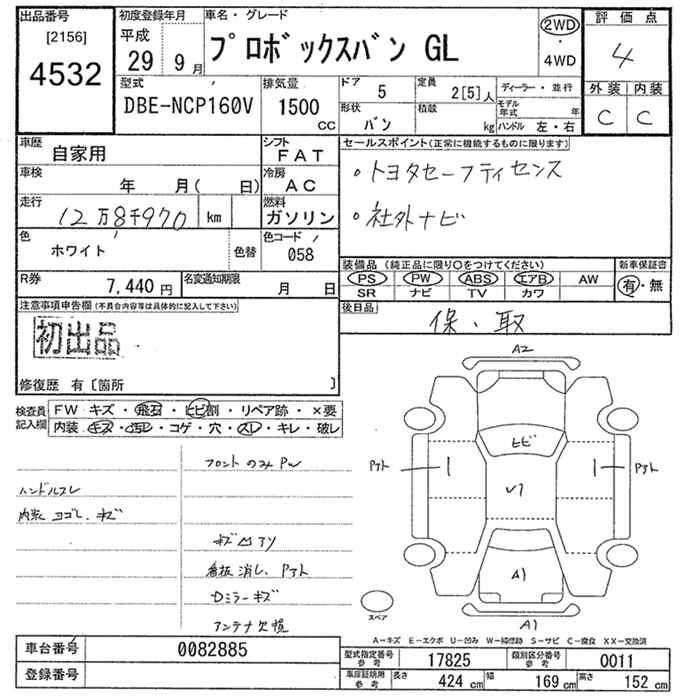 出品番号
[2156]
4532
初度登録年月
平成
29年 9月
車名・グレード
プロボックスバン GL
2WD
・
4WD
評価点
4
外装 内装
C C
型式
DBE-NCP160V
排気量
1500
CC
ドア
5
定員
2[5]人
形状
バン
積載
kg
ディーラー・並行
モデル年式 年
ハンドル 左・右
車歴
自家用
シフト
FAT
車検
年 月( 日)
冷房
AC
走行
12万8千970 km
燃料
ガソリン
色
ホワイト
色替
色コード
058
R券
7,440円
名変通知期限
月 日
セールスポイント(正常に機能するものに限ります)
・トヨタセーフティセンス
・社外ナビ
装備品(純正品に限り○をつけてください)
PS PW ABS エアB AW
SR ナビ TV カワ
新車保証書
有・無
後日品
保・取
注意事項申告欄(不具合内容等は具体的に記入して下さい)
初出品
修復歴 有〔箇所 〕
検査員記入欄
FW キズ・飛石・ヒビ割・リペア跡・×要
内装 キズ・汚レ・コゲ・穴・スレ・キレ・破レ
フロントのみPW
ハンドルスレ
内装ヨゴレ、キズ
キズ凹アリ
看板消し、Pアト
Dミラーキズ
アンテナ欠損
A2
ヒビ
Pアト
Pアト
A1
A1
スペア
A-キズ E-エクボ U-凹み W-補修跡 S-サビ C-腐食 XX-交換済
車台番号
0082885
登録番号
型式指定番号
参考
17825
類別区分番号
参考
0011
車庫証明用
参考
長さ 424 cm
幅 169 cm
高さ 152 cm